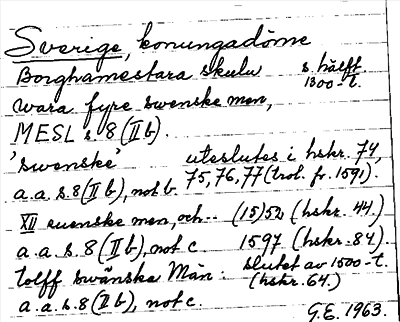 Sverige, konungadöme
Borghamestara skulu s. hälft
1300-t.
wara fyre swenske men,
MESL s. 8 (II b).
'swenske' uteslutes i hskr. 74,
a.a. s. 8 (II b), not b. 75, 76, 77 (trol. fr. 1591).
XII suenske men, och-- (15)52 (hskr. 44.)
a.a. s. 8 (II b), not c. 1597 (hskr. 84).
tolff swänska Män. slutet av 1500-t.
(hskr. 64.)
a.a. s. 8 (II b), not c.
G.E. 1963.